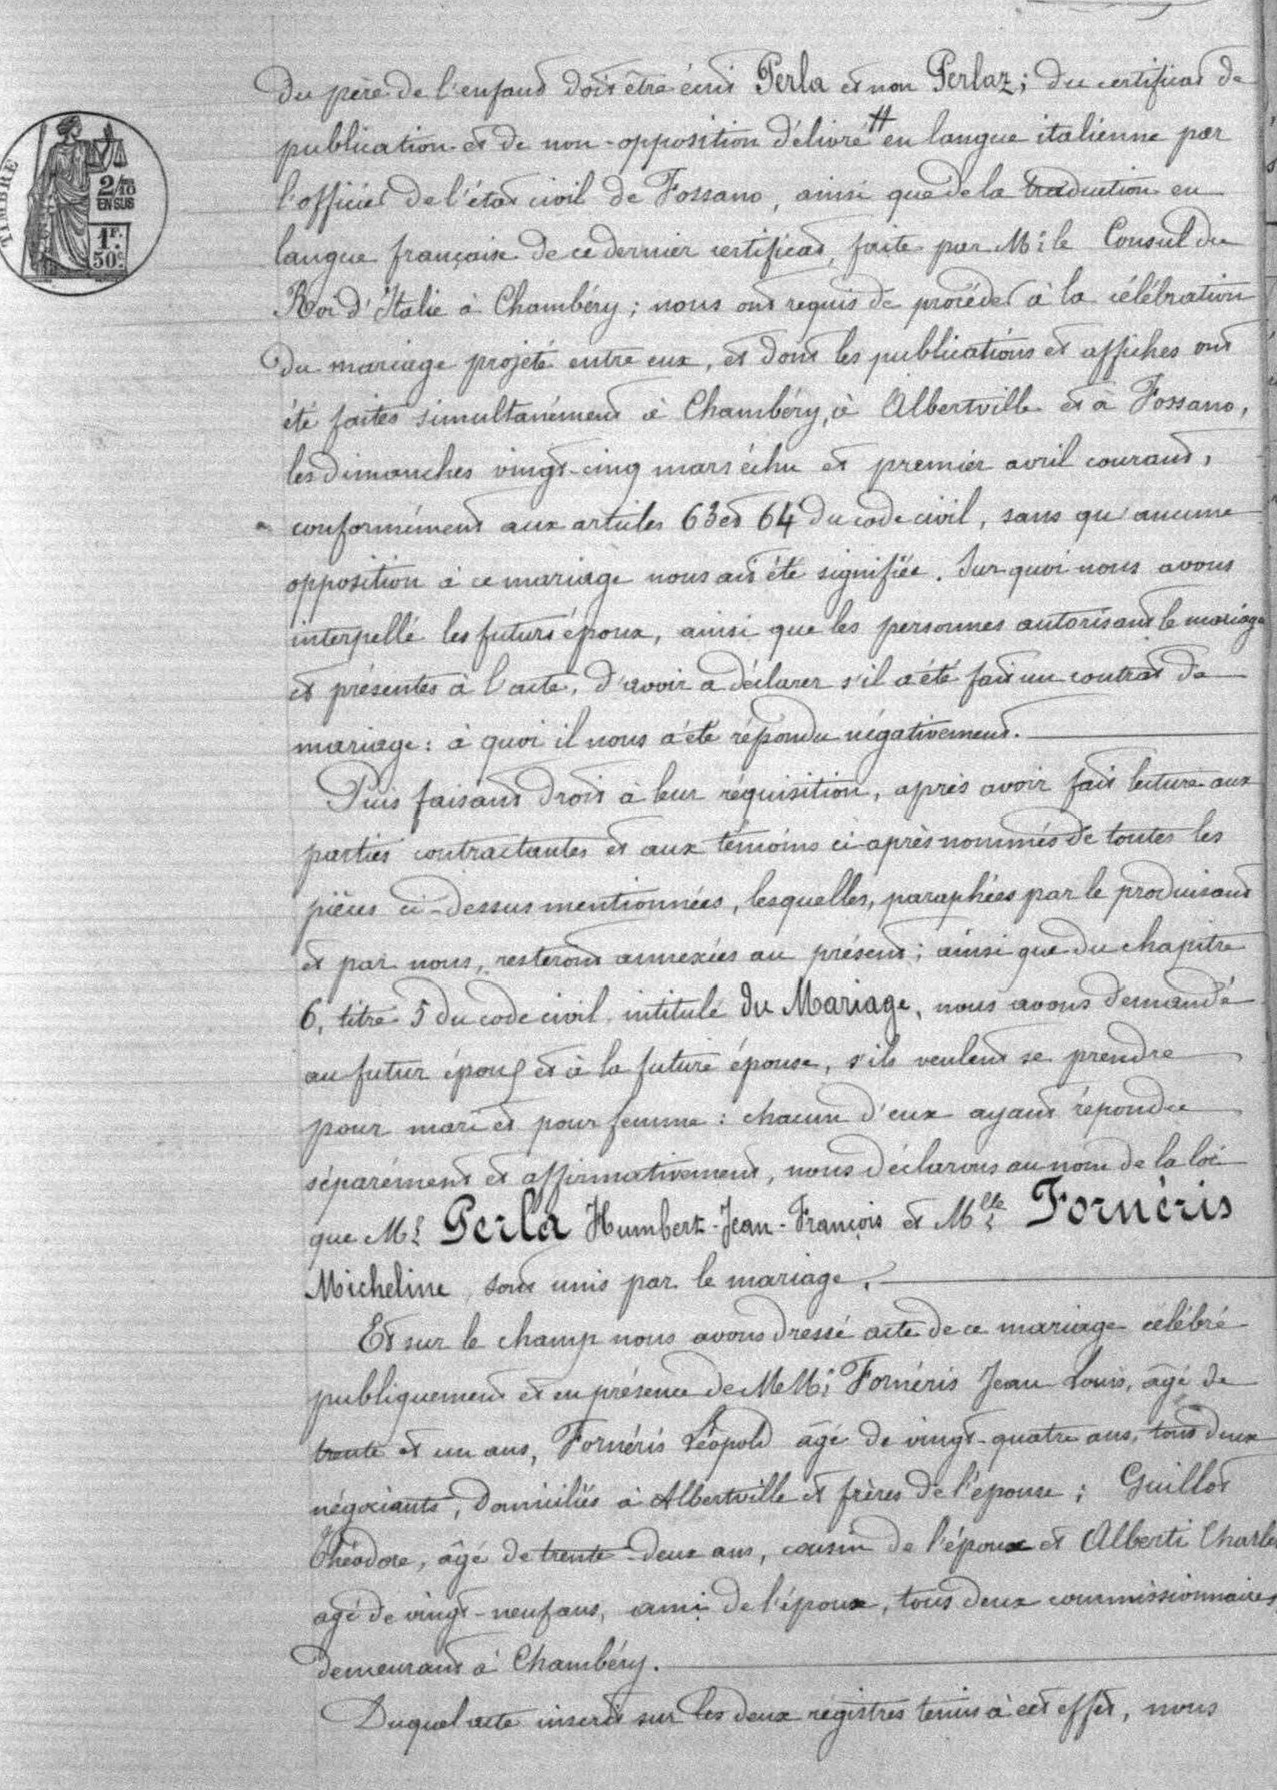 TIMBRE
2/10
EN SUS
1F.
50c.
du père de l'enfant doit être écrit Perla et non Perlaz; du certificat de
publication et de non-opposition délivré # en langue italienne par
l'officier de l'état civil de Fossano, ainsi que de la traduction en
langue française de ce dernier certificat, faite par Mr. le Consul du
Roi d'Italie à Chambéry; nous ont requis de procéder à la célébration
du mariage projeté entre eux, et dont les publications et affiches ont
été faites simultanément à Chambéry, à Albertville et à Fossano,
les dimanches vingt-cinq mars échu et premier avril courant,
conformément aux articles 63 et 64 du code civil, sans qu'aucune
opposition à ce mariage nous ait été signifiée. Sur quoi nous avons
interpellé les futurs époux, ainsi que les personnes autorisant le mariage
et présentes à l'acte, d'avoir à déclarer s'il a été fait un contrat de
mariage: à quoi il nous a été répondu négativement.
Puis faisant droit à leur réquisition, après avoir fait lecture aux
parties contractantes et aux témoins ci-après nommés de toutes les
pièces ci-dessus mentionnées, lesquelles, paraphées par le produisant
et par nous, resteront annexées au présent; ainsi que du chapitre
6, titre 5 du code civil intitulé du Mariage, nous avons demandé
au futur époux et à la future épouse, s'ils veulent se prendre
pour mari et pour femme: chacun d'eux ayant répondu
séparément et affirmativement, nous déclarons au nom de la loi
que Mr. Perla Humbert-Jean-François et Mlle. Fornéris
Micheline, sont unis par le mariage.
Et sur le champ nous avons dressé acte de ce mariage célébré
publiquement et en présence de MMrs. Fornéris Jean Louis, âgé de
trente et un ans, Fornéris Léopold âgé de vingt-quatre ans, tous deux
négociants, domiciliés à Albertville et frères de l'épouse; Guillot
Théodore, âgé de trente-deux ans, cousin de l'époux et Alberti Charles
âgé de vingt-neuf ans, ami de l'époux, tous deux commissionnaires
demeurant à Chambéry.
Duquel acte inscrit sur les deux régistres tenus à cet effet, nous